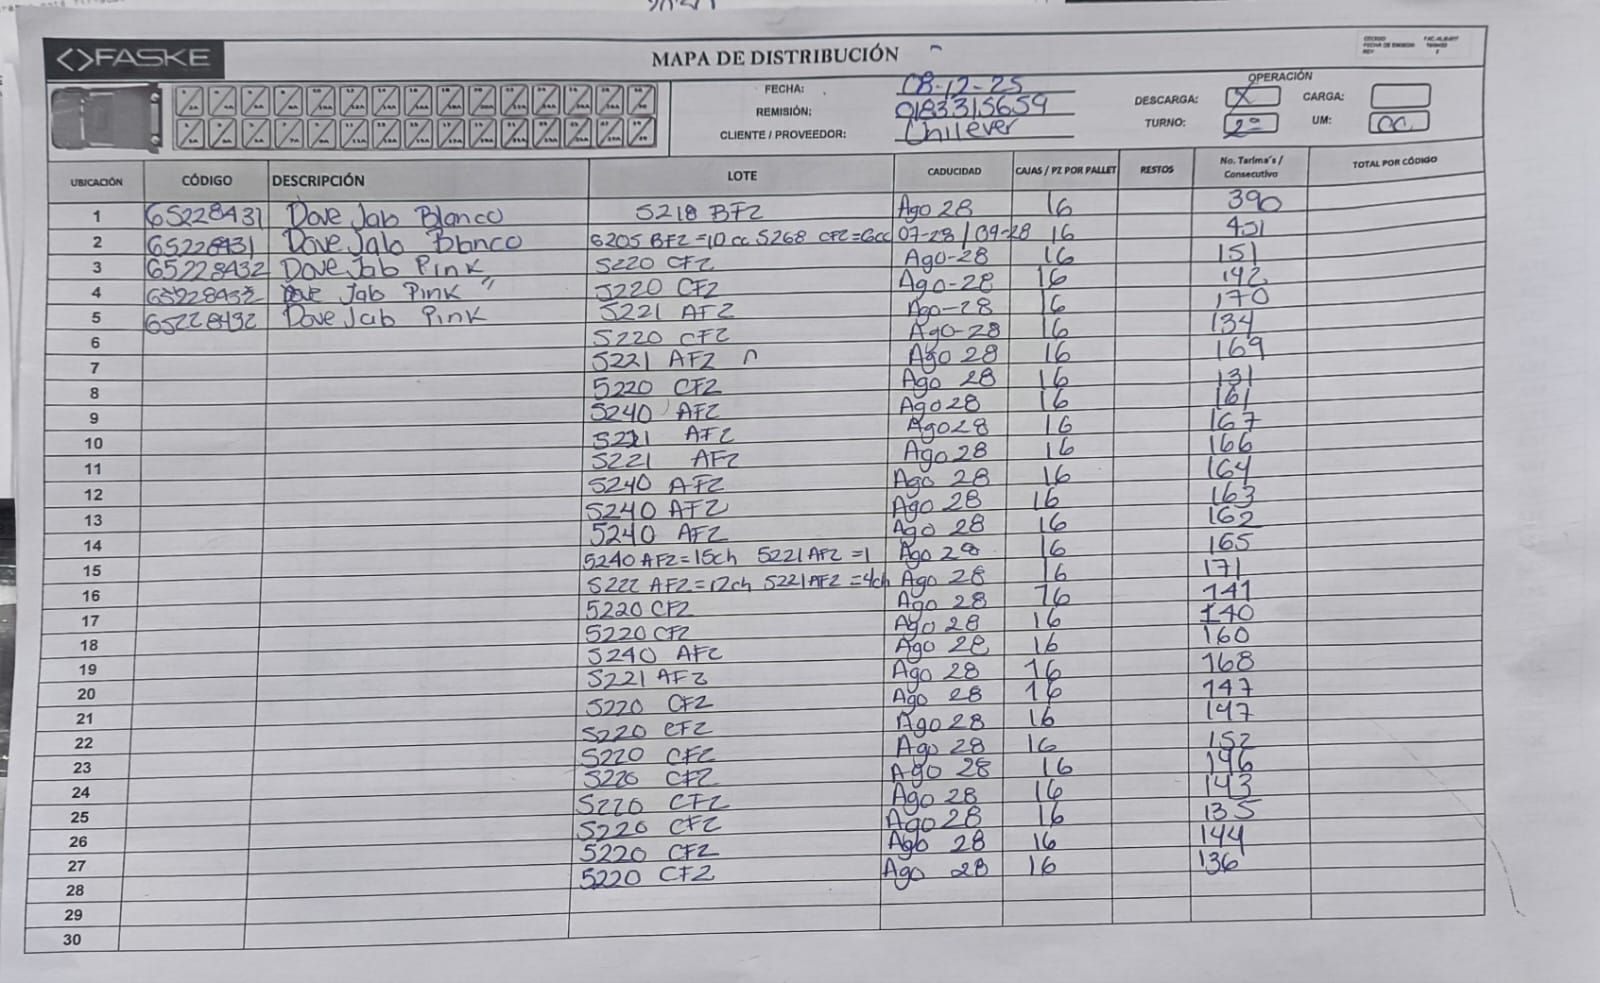 <>FASKE
MAPA DE DISTRIBUCIÓN
FECHA: 08-12-25
REMISIÓN: 0183315659
CLIENTE / PROVEEDOR: Chilever
OPERACIÓN
DESCARGA: X CARGA:
TURNO: 2º UM: cc.
UBICACIÓN CÓDIGO DESCRIPCIÓN LOTE CADUCIDAD CAJAS / PZ POR PALLET RESTOS No. Tarima's / Consecutivo TOTAL POR CÓDIGO
1 65228431 Dove Jab Blanco 5218 BF2 Ago 28 16 390
2 65228431 Dove Jab Blanco 6205 BF2 =10 cc 5268 CF2 =6cc 07-28 / 09-28 16 401
3 65228432 Dove Jab Pink 5220 CF2 Ago-28 16 151
4 65228432 Dove Jab Pink " 5220 CF2 Ago-28 16 142
5 65228432 Dove Jab Pink 5221 AF2 Ago-28 16 170
6 5220 CF2 Ago-28 16 134
7 5221 AF2 Ago 28 16 169
8 5220 CF2 Ago 28 16 131
9 5240 AF2 Ago 28 16 161
10 5221 AF2 Ago 28 16 167
11 5221 AF2 Ago 28 16 166
12 5240 AF2 Ago 28 16 164
13 5240 AF2 Ago 28 16 163
14 5240 AF2 Ago 28 16 162
15 5240 AF2 =15ch 5221 AF2 =1 Ago 28 16 165
16 5222 AF2 =12ch 5221 AF2 =4ch Ago 28 16 171
17 5220 CF2 Ago 28 16 141
18 5220 CF2 Ago 28 16 140
19 5240 AF2 Ago 28 16 160
20 5221 AF2 Ago 28 16 168
21 5220 CF2 Ago 28 16 147
22 5220 CF2 Ago 28 16 147
23 5220 CF2 Ago 28 16 152
24 5220 CF2 Ago 28 16 146
25 5220 CF2 Ago 28 16 143
26 5220 CF2 Ago 28 16 135
27 5220 CF2 Ago 28 16 144
28 5220 CF2 Ago 28 16 136
29
30